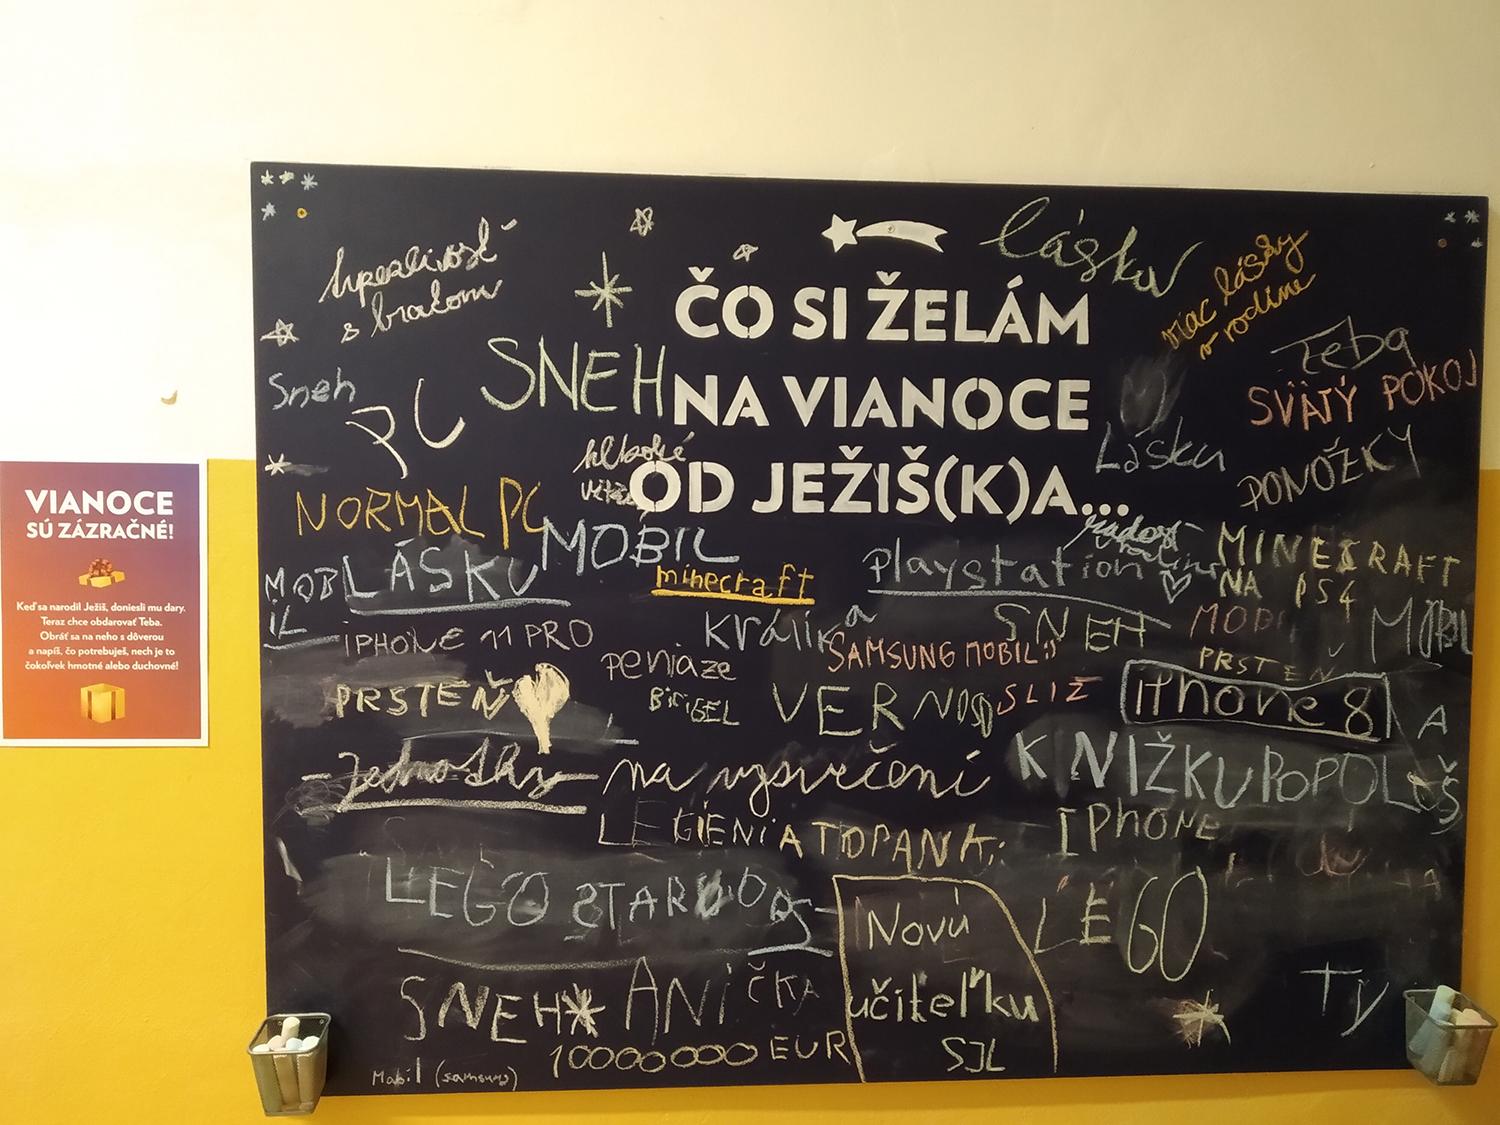 VIANOCE
SÚ ZÁZRAČNÉ!
Keď sa narodil Ježiš, doniesli mu dary.
Teraz chce obdarovať Teba.
Obráť sa na neho s dôverou
a napíš, čo potrebuješ, nech je to
čokoľvek hmotné alebo duchovné!
ČO SI ŽELÁM
NA VIANOCE
OD JEŽIŠ(K)A...
s bratom
lásku
viac lásky
v rodine
Teba
SVÄTÝ POKOJ
Sneh
PC
SNEH
hlboké
Lásku
PONOŽKY
NORMAL PC
MOBIL
radosť
MOBIL
LÁSKU
minecraft
playstation
MINECRAFT
NA PS4
IPHONE 11 PRO
králika
SNEH
MOBIL
MOBIL
peniaze
SAMSUNG MOBIL
PRSTEŇ
PRSTEŇ
VERNOSŤ
SLIZ
iPhone 8
Jednotky
na vysvečení
KNIŽKU POPOLUŠ
LEGIENI A TOPANKI
IPhONE
LEGO STAR
Novú
učiteľku
SJL
LEGO
SNEH
ANIČKA
Ty
10000000 EUR
Mobil (samsung)